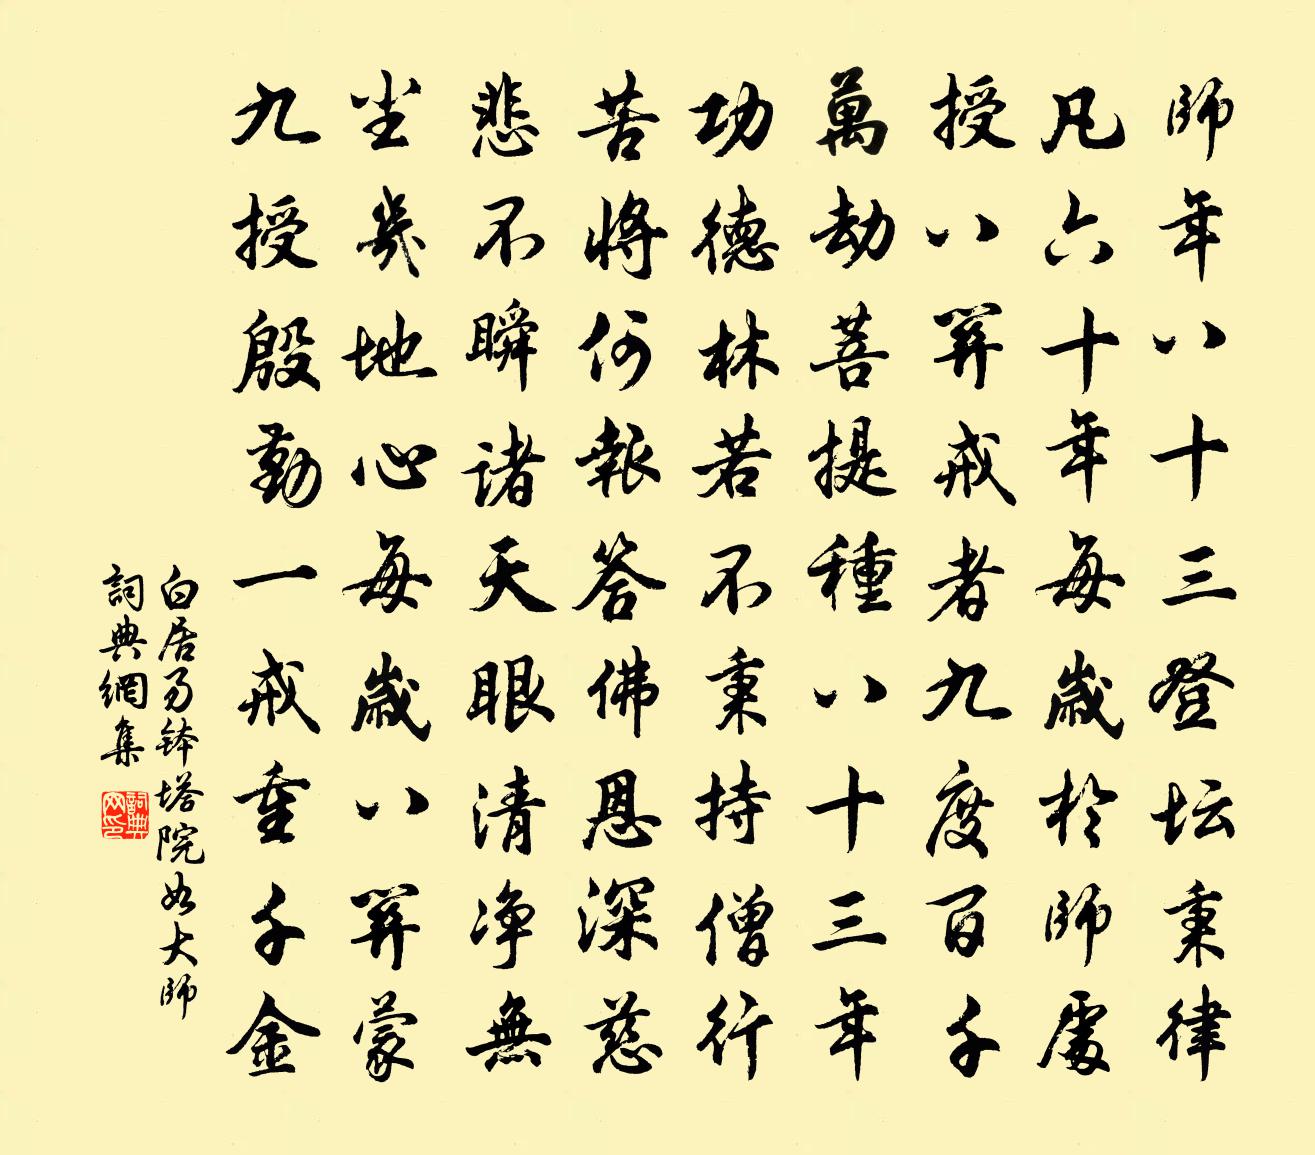 師年八十三登坛秉律
凡六十年每歲於師處
授八関戒者九度百千
萬劫菩提種八十三年
功德林若不秉持僧行
苦將何報答佛恩深慈
悲不瞬諸天眼清净無
尘幾地心每歲八関蒙
九授殷勤一戒重千金
白居易钵塔院如大师
詞典網集
詞典网印